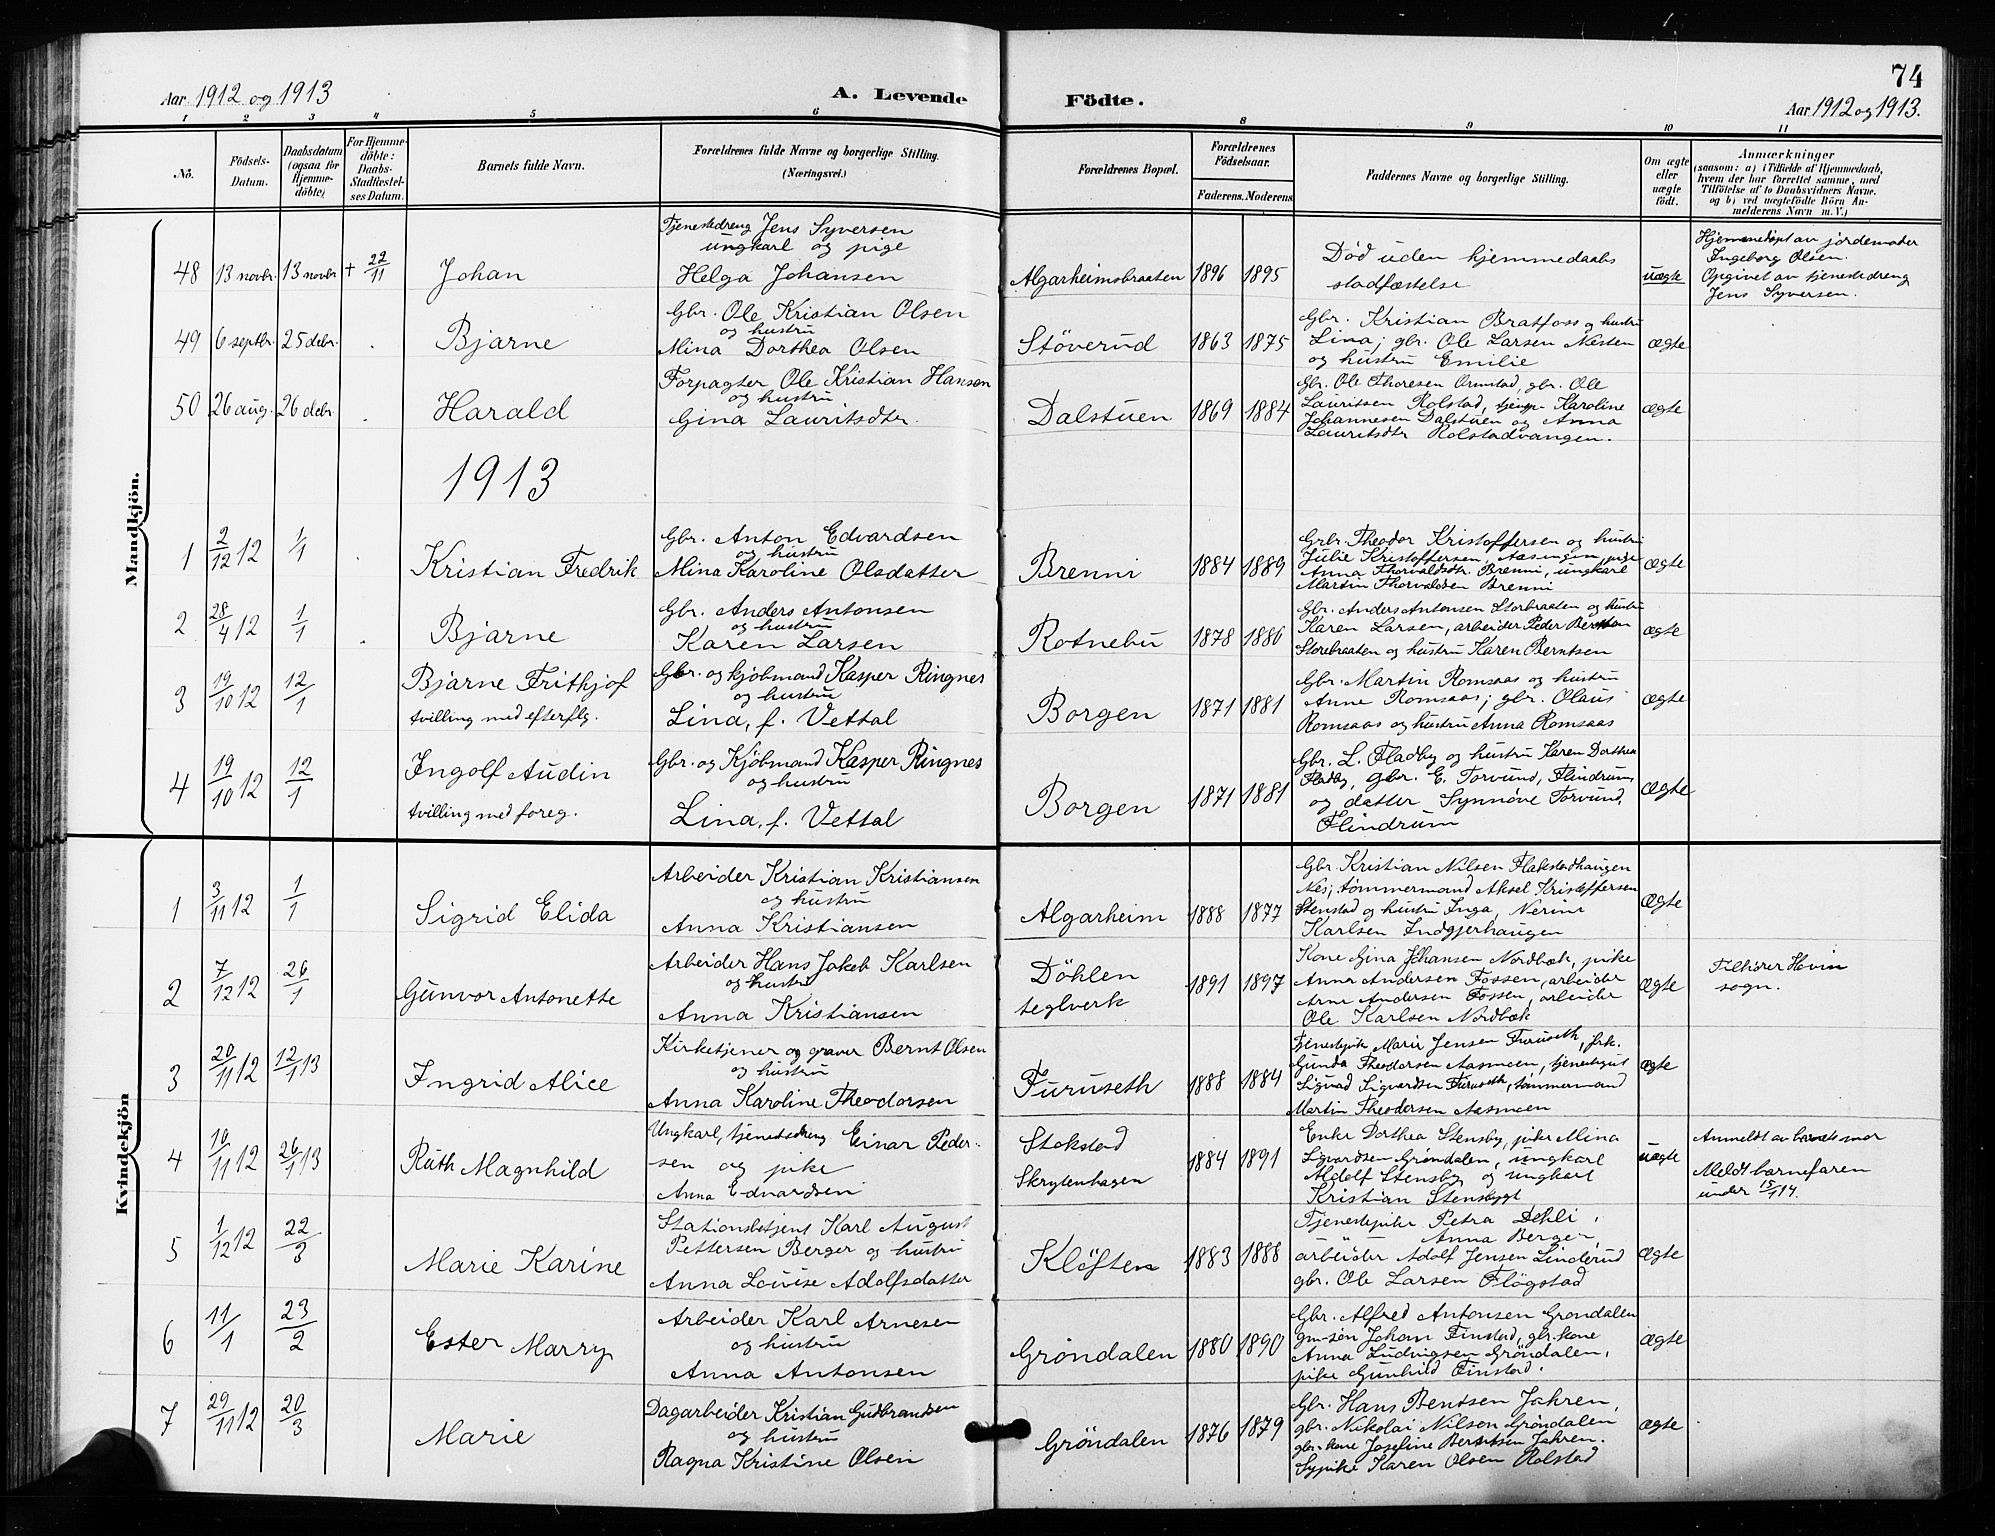 74
Aar 1912 og 1913
A. Levende
Födte.
Aar 1912 og 1913.
1 2 3 4 5 6 8 9 10 11
No.
Födsels-
Datum.
Daabsdatum
(ogsaa for
Hjemme-
döbte)
For Hjemme-
döbte:
Daabs-
Stadfæstel-
ses Datum.
Barnets fulde Navn.
Forældrenes fulde Navne og borgerlige Stilling.
(Næringsvei.)
Forældrenes Bopæl.
Forældrenes
Födselsaar.
Faderens. Moderens
Faddernes Navne og borgerlige Stilling.
Om ægte
eller
uægte
födt.
Anmærkninger
(saasom: a) i Tilfælde af Hjemmedaab,
hvem der har forrettet samme, med
Tilföielse af to Daabsvidners Navne.
og b) ved uægtefödte Börn An-
melderens Navn m. V.)
Mandkjön.
48 13 novbr. 13 novbr + 22/11
Johan
Tjenestedreng Jens Syversen
ungkarl og pige
Helga Johansen
Algarheimsbraaten 1896 1895
Död uden hjemmedaabs
stadfæstelse
uægte
Hjemmedöpt av jordemoder
Ingeborg Olsen.
Opgivet av tjenestedreng
Jens Syversen.
49 6 septbr. 25 debr. .
Bjarne
Gbr. Ole Kristian Olsen
og hustru
Mina Dorthea Olsen
Stöverud 1863 1875
Gbr. Kristian Bratfoss og hustru
Lina; gbr. Ole Larsen Nesten
og hustru Emilie
ægte
50 26 aug. 26 debr .
Harald
Forpagter Ole Kristian Hansen
og hustru
Gina Lauritsdtr.
Dalstuen 1869 1884
Gbr. Ole Thoresen Ormstad, gbr. Ole
Lauritsen Rolstad, tjenp. Karoline
Johannesen Dalstuen og Anna
Lauritsdtr Rolstadvangen.
ægte
1913
1 2/12 12 1/1 .
Kristian Fredrik
Gbr. Anton Edvardsen
og hustru
Mina Karoline Olsdatter
Brenni 1884 1889
Grbr. Theodor Kristoffersen og hustru
Julie Kristoffersen, Aasengen, pige
Anna Thorvaldsdtr. Brenni, ungkarl
Martin Thorvaldsen Brenni
ægte
2 28/4 12 1/1 .
Bjarne
Gbr. Anders Antonsen
og hustru
Karen Larsen
Rotnebu 1878 1886
Gbr. Anders Antonsen Storbraaten og hustru
Karen Larsen, arbeider Peder Berntsen
Storebraaten og hustru Karen Berntsen
ægte
3 19/10 12 12/1
Bjarne Frithjof
tvilling med efterflg.
Gbr. og kjöbmand Kasper Ringnes
og hustru
Lina, f. Vettal
Borgen 1871 1881
Gbr. Martin Romsaas og hustru
Anne Romsaas; gbr. Olaus
Romsaas og hustru Anna Romsaas
ægte
4 19/10 12 12/1
Ingolf Audin
tvilling med foreg.
Gbr. og Kjöbmand Kasper Ringnes
og hustru
Lina, f. Vettal
Borgen 1871 1881
Gbr. L. Fladby og hustru Karen Dorthea
Fladby, gbr. E. Torvund, Flindrum
og datter Synnöve Torvund,
Flindrum
ægte
Kvindekjön
1 3/11 12 1/1
Sigrid Elida
Arbeider Kristian Kristiansen
og hustru
Anna Kristiansen
Algarheim 1888 1877
Gbr. Kristian Nilsen Flakstadhaugen
Nes; tömmermand Aksel Kristoffersen
Stenstad og hustru Inga,
Karlsen Indgjerhaugen
ægte
2 7/12 12 26/1
Gunvor Antonette
Arbeider Hans Jakob Karlsen
og hustru
Anna Kristiansen
Döhlen
teglverk
1891 1897
Kone Gina Johansen Nordbæk, pike
Anna Andersen Fossen, arbeider
Arne Andersen Fossen, arbeider
Ole Karlsen Nordbæk
ægte
Tilhörer Hovin
sogn.
3 20/11 12 12/1 13
Ingrid Alice
Kirketjener og graver Bernt Olsen
og hustru
Anna Karoline Theodorsen
Furuseth 1888 1884
Tjenestepike Marie Jensen Furuseth, pik.
Gunda Theodorsen Aasmoen, tjenestegut
Sigvad Sigvardsen Furuseth, tömmermand
Martin Theodorsen Aasmoen
ægte
4 10/11 12 26/1 13
Ruth Magnhild
Ungkarl, tjenestedreng Einar Peder-
sen og pike
Anna Edvardsen
Stokstad
Skrytenhagen
1884 1891
Enke Dorthea Stensby, pike Mina
Sigvardsen Gröndalen, ungkarl
Aldolf Stensby og ungkarl
Kristian Stensbygt
uægte
Anmeldt av barnets mor
Meldt barnefaren
under 15/1 14.
5 1/12 12 22/3
Marie Karine
Stationsbetjent Karl August
Pettersen Berger og hustru
Anna Louise Adolfsdatter
Klöften 1883 1888
Tjenestepike Petra Dehli,
" Anna Berger,
arbeider Adolf Jensen Linderud
gbr. Ole Larsen Flögstad
ægte
6 11/1 23/2
Ester Marry
Arbeider Karl Arnesen
og hustru
Anna Antonsen
Gröndalen 1880 1890
Gbr. Alfred Antonsen Gröndalen
gm-sön Johan Finstad, gbr. kone
Anna Ludvigsen Gröndalen,
pike Gunhild Finstad.
ægte
7 29/11 12 20/3
Marie
Dagarbeider Kristian Gudbrandsen
og hustru
Ragna Kristine Olsen
Gröndalen 1876 1879
Gbr. Hans Bentsen Jahren,
gbr. Nikolai Nilsen Gröndalen
gbr. kone Josefine Berntsen Jahren.
Sypike Karen Olsen Rolstad
ægte